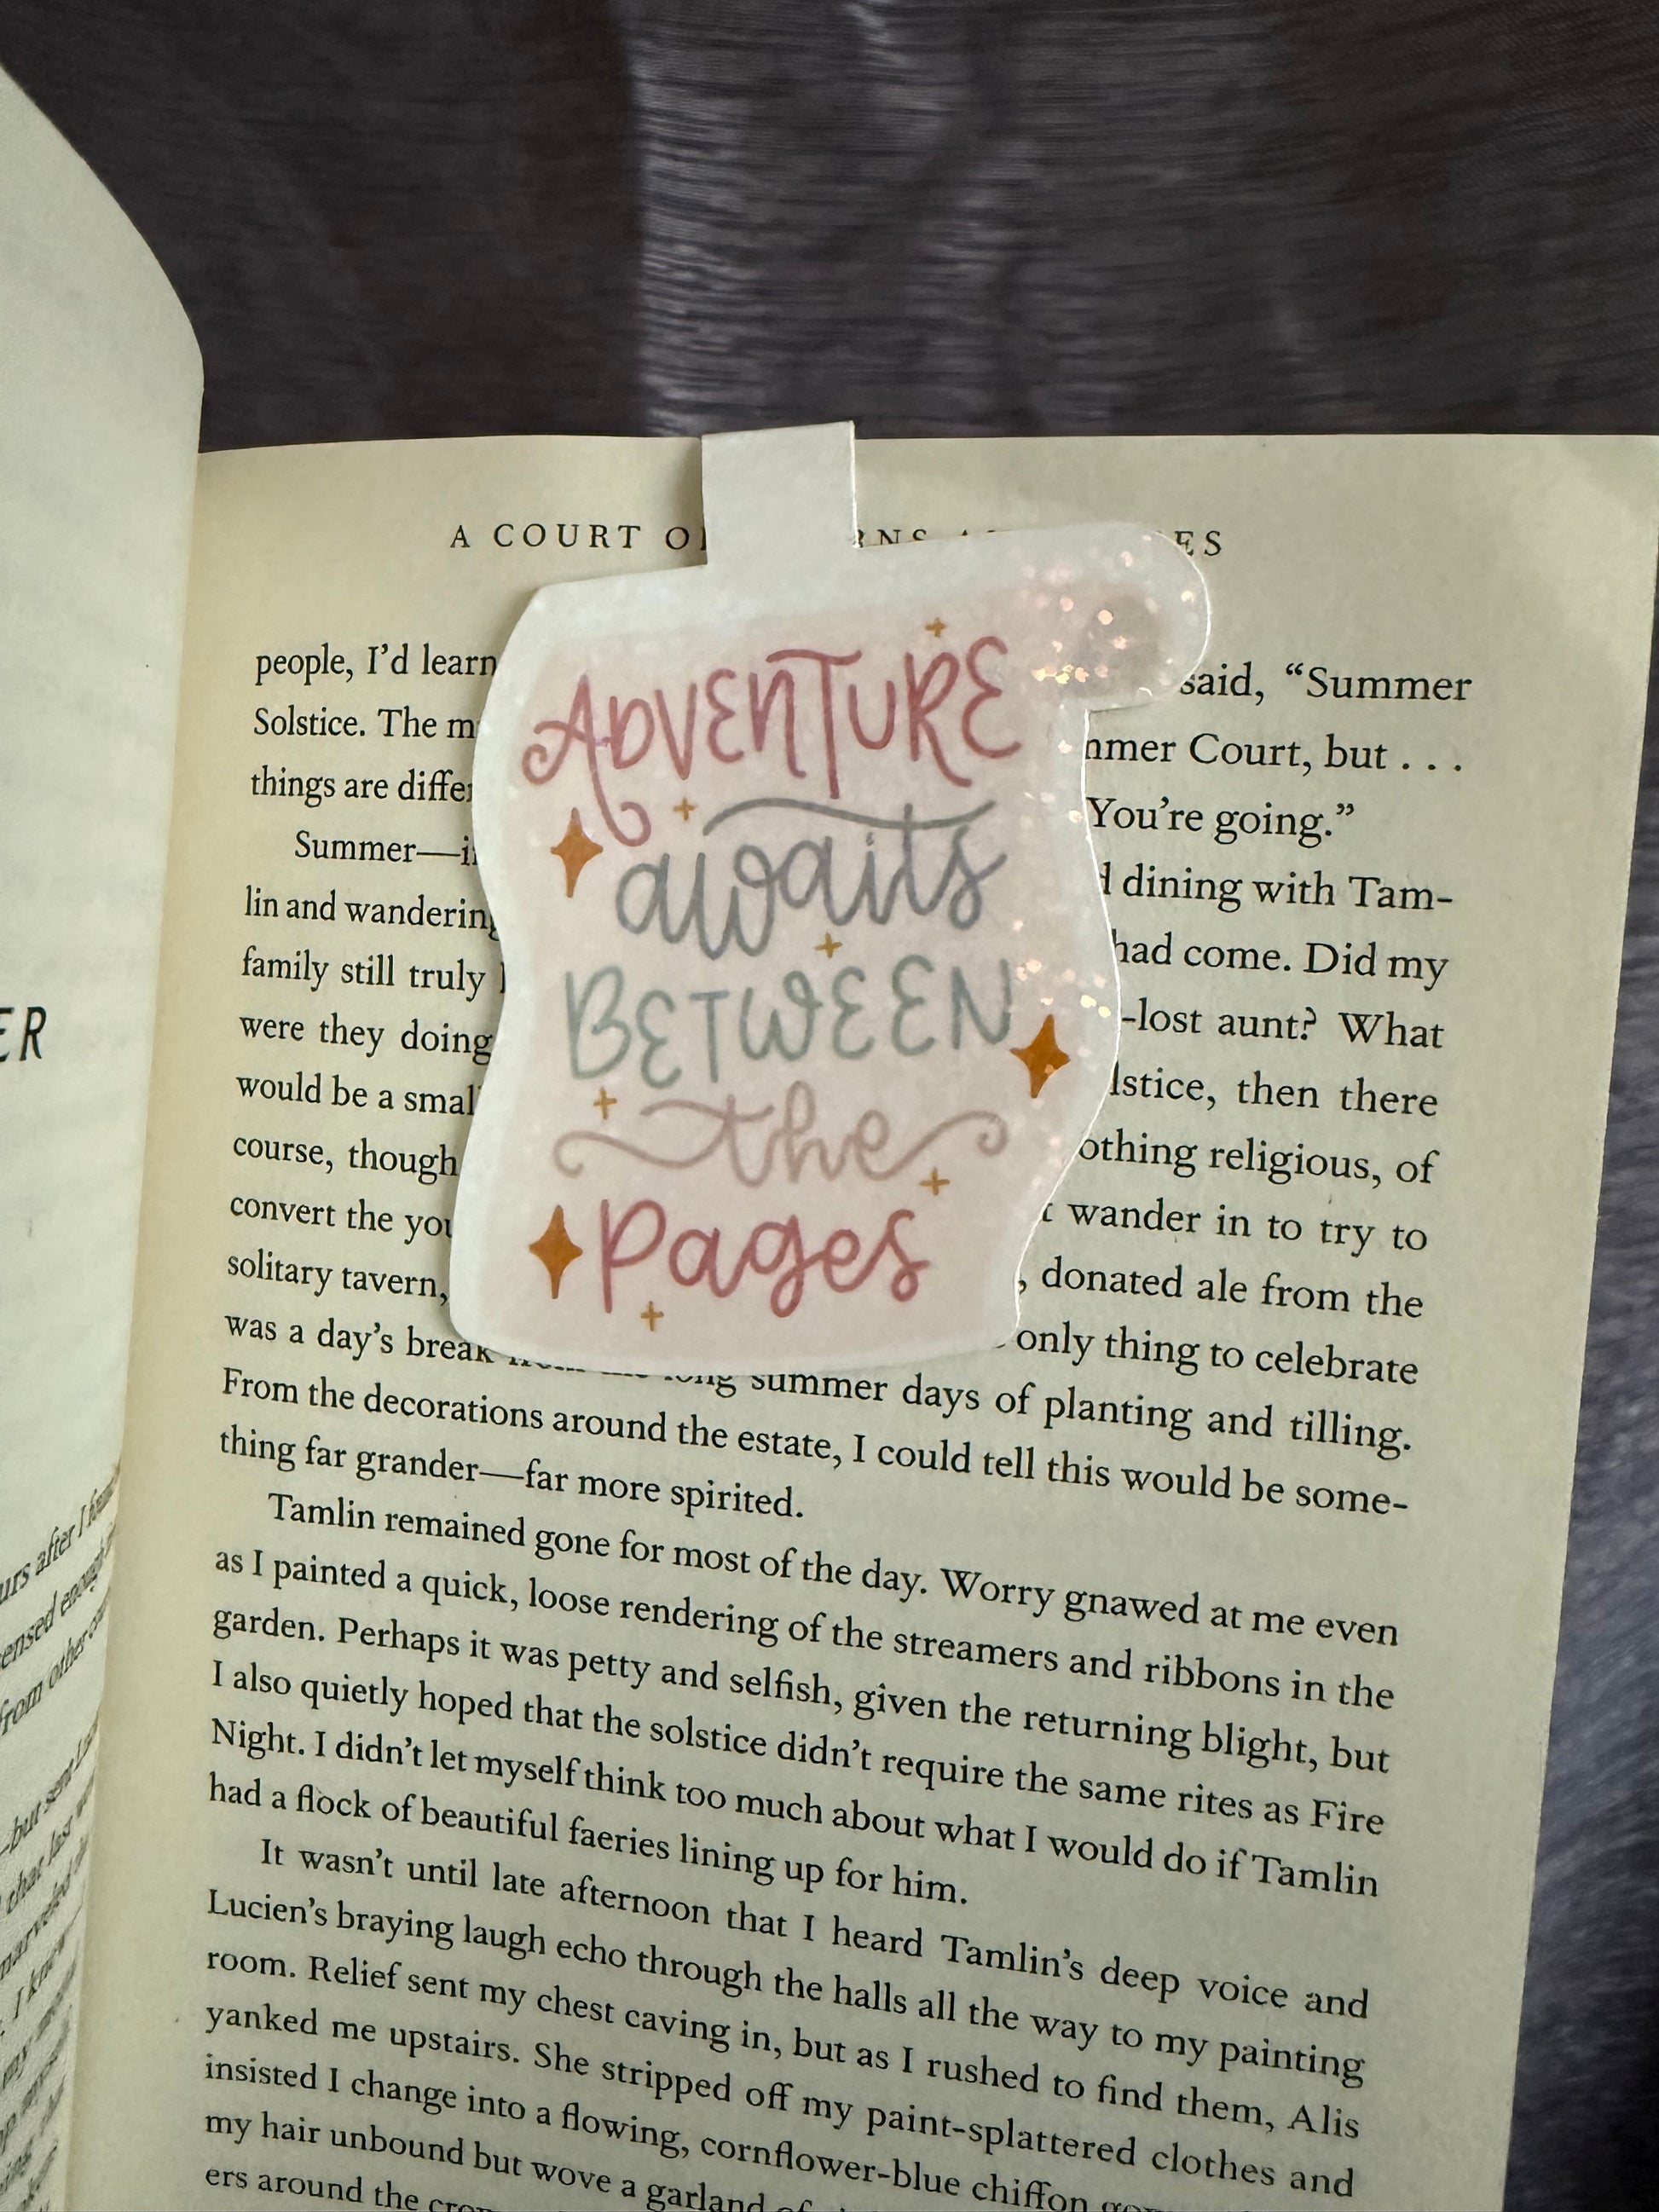 A COURT O RNS A ES
people, I'd learn said, "Summer
Solstice. The m mmer Court, but . . .
things are differ You're going."
Summer—i d dining with Tam-
lin and wandering had come. Did my
family still truly -lost aunt? What
were they doing lstice, then there
would be a smal othing religious, of
course, though t wander in to try to
convert the you , donated ale from the
solitary tavern, only thing to celebrate
was a day's break long summer days of planting and tilling.
From the decorations around the estate, I could tell this would be some-
thing far grander—far more spirited.
Tamlin remained gone for most of the day. Worry gnawed at me even
as I painted a quick, loose rendering of the streamers and ribbons in the
garden. Perhaps it was petty and selfish, given the returning blight, but
I also quietly hoped that the solstice didn't require the same rites as Fire
Night. I didn't let myself think too much about what I would do if Tamlin
had a flock of beautiful faeries lining up for him.
It wasn't until late afternoon that I heard Tamlin's deep voice and
Lucien's braying laugh echo through the halls all the way to my painting
room. Relief sent my chest caving in, but as I rushed to find them, Alis
yanked me upstairs. She stripped off my paint-splattered clothes and
insisted I change into a flowing, cornflower-blue chiffon
my hair unbound but wove a garland
ers around the
ADVENTURE
awaits
BETWEEN
the
Pages
ER
urs after I
ensed enough
from other